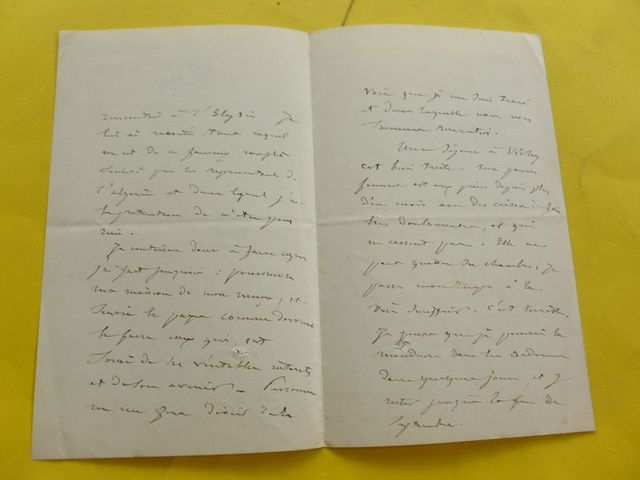 rencontré à l'Elysée. Je
lui ai raconté tout ce qui
en est de ce fameux complot
par les représentants de
l'Algérie et dans lequel j'ai
la prétention de n'être pour
rien.
Je continue donc à faire ce que
j'ai fait jusqu'ici : poursuivre
ma mission de mon mieux, et
servir le pays comme doivent
le faire ceux qui ont
souci de ses véritables intérêts
et de son avenir – Personne
ne me fera dévier de la
voie que je me suis tracée
et dans laquelle nous nous
sommes rencontrés.
Mon séjour à Vichy
est bien triste. Ma pauvre
femme est aux prises depuis plus
d'un mois avec des crises de foie
très douloureuses, et qui
ne cessent pas. Elle ne
peut quitter sa chambre, je
passe mon temps à la
voir souffrir. C'est terrible.
Je pense que je pourrai la
conduire dans les Ardennes
dans quelques jours, et j'y
resterai jusqu'à la fin de
septembre.